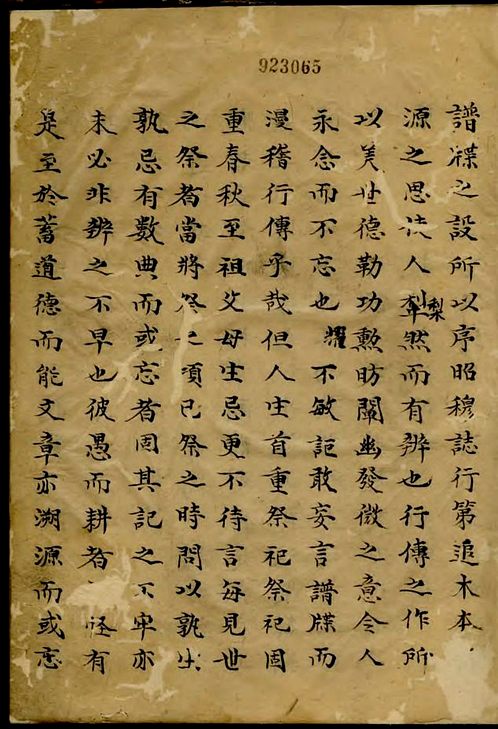 923065
譜牒之設所以序昭穆誌行第追木本
源之思使人犂然而有辨也行傳之作所
梨
以美世德勒功勲昉闡幽發微之意令人
永念而不忘也 耀 不敏詎敢妄言譜牒而
漫稽行傳乎哉但人生首重祭祀祭祀固
重春秋至祖父母生忌更不待言每見世
之祭者當將祭之項已祭之時問以孰生
孰忌有數典而或忘者固其記之不牢亦
未必非辨之不早也彼愚而耕者 怪有
是至於蓄道德而能文章亦溯源而或忘